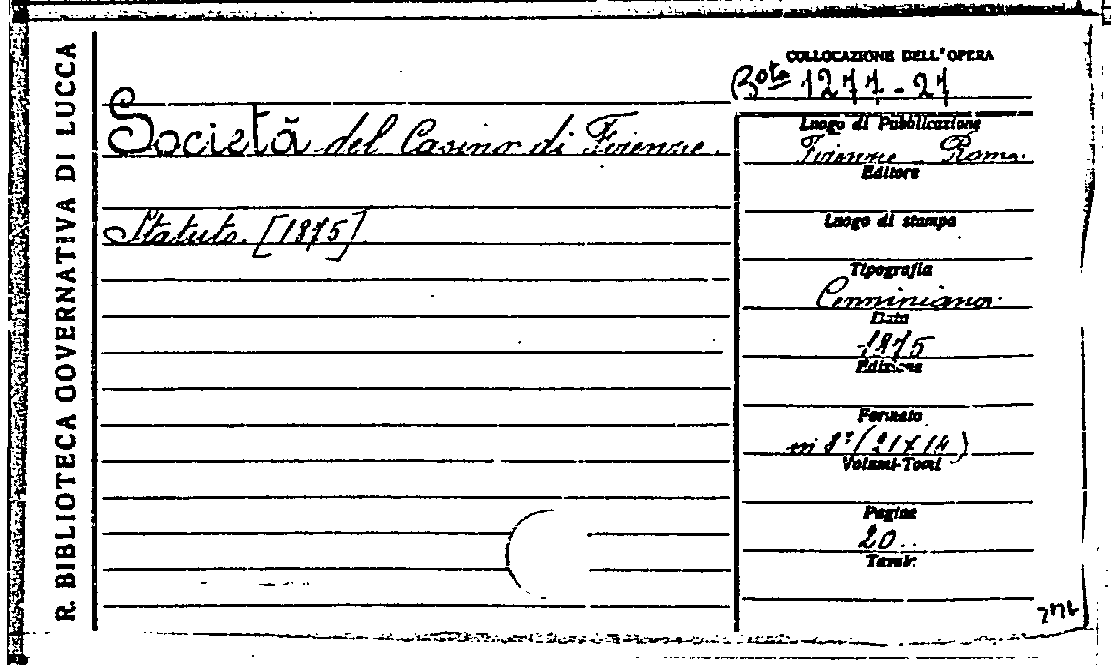 R. BIBLIOTECA GOVERNATIVA DI LUCCA
Società del Casino di Firenze.
Statuto. [1875]
COLLOCAZIONE DELL'OPERA
Bta 1277-21
Luogo di Pubblicazione
Firenze Roma.
Editore
Luogo di stampa
Tipografia
Cenniniana.
Data
1875
Edizione
Formato
in 8° (21x14)
Volumi-Tomi
Pagine
20.
Tavole